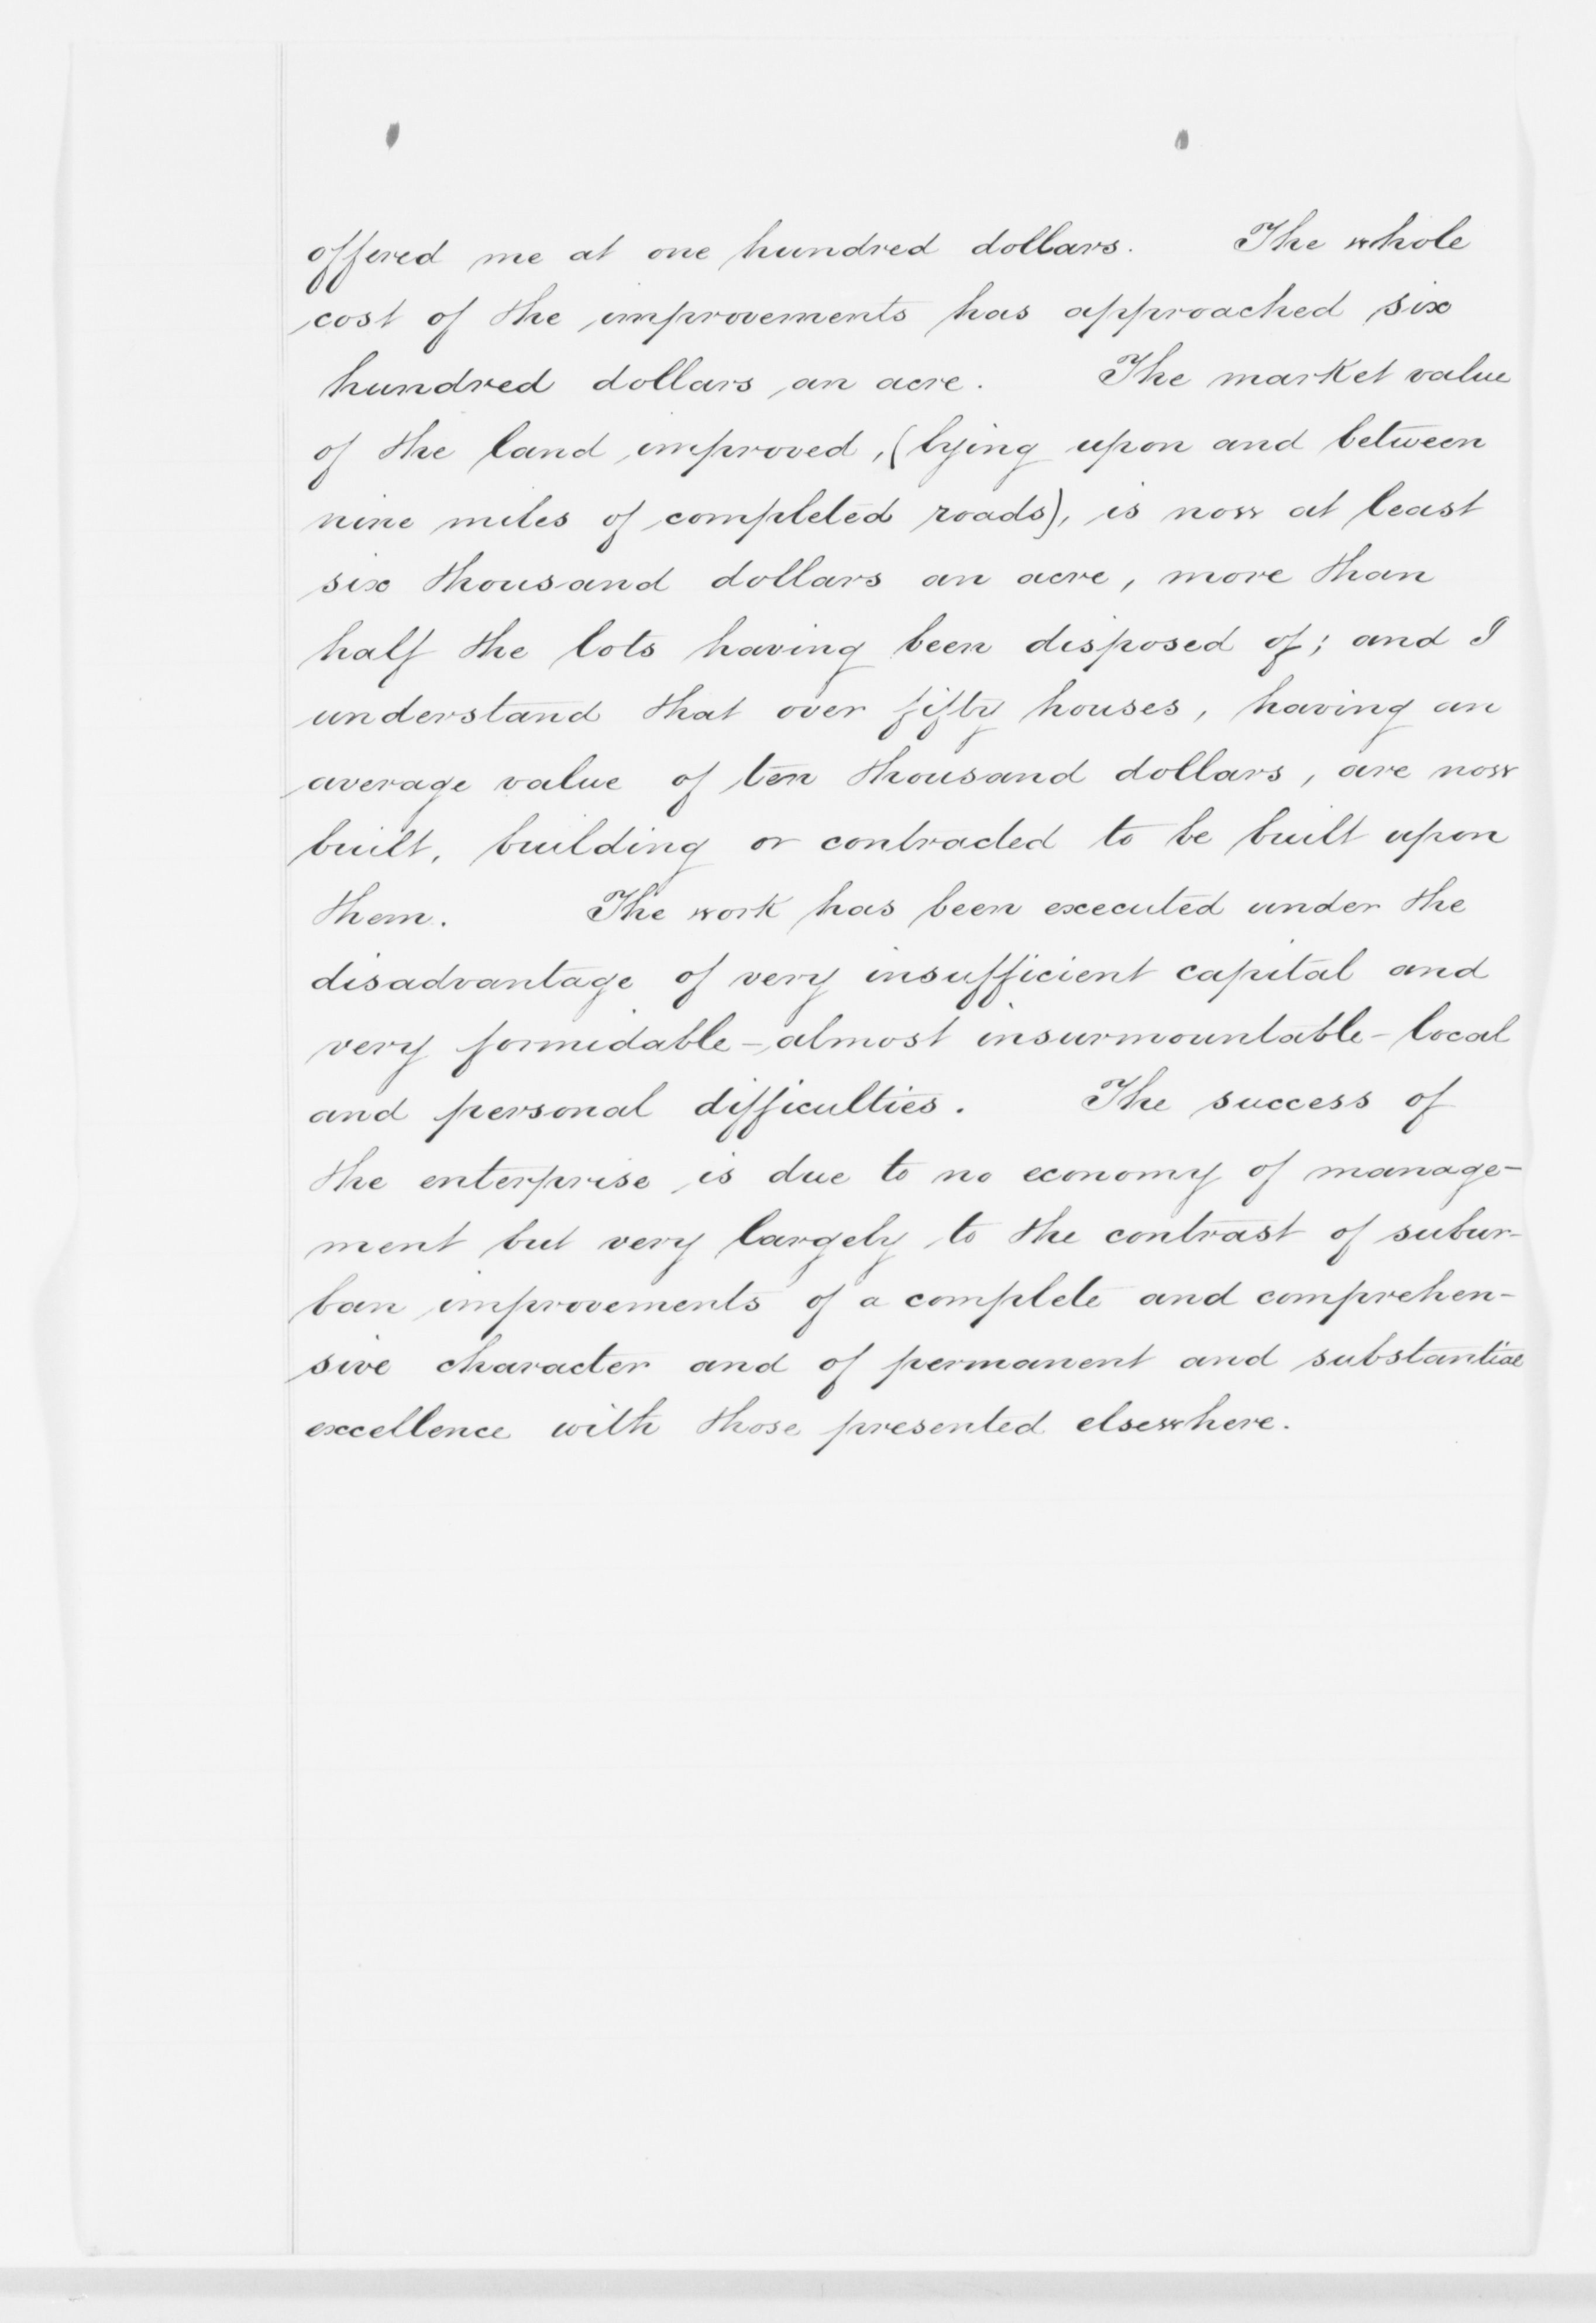 offered me at one hundred dollars. The whole
cost of the improvements has approached six
hundred dollars an acre. The market value
of the land improved, (lying upon and between
nine miles of completed roads), is now at least
six thousand dollars an acre, more than
half the lots having been disposed of; and I
understand that over fifty houses, having an
average value of ten thousand dollars, are now
built, building or contracted to be built upon
them. The work has been executed under the
disadvantage of very insufficient capital and
very formidable - almost insurmountable - local
and personal difficulties. The success of
the enterprise is due to no economy of manage-
ment but very largely to the contrast of subur-
ban improvements of a complete and comprehen-
sive character and of permanent and substantial
excellence with those presented elsewhere.